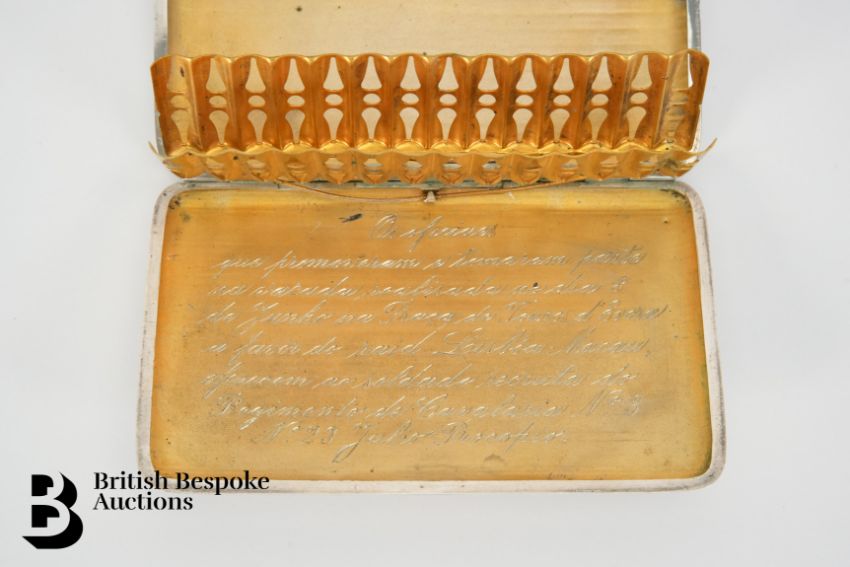 Os oficiaes
que promoveram e tomaram parte
na corrida realisada no dia 8
de Junho na Praça de Touros d'Evora
a favor do raid Lisboa Macau,
oferecem ao soldado recruta do
Regimento de Cavalaria Nº 5
Nº 23 Julio Procopio
British Bespoke
Auctions